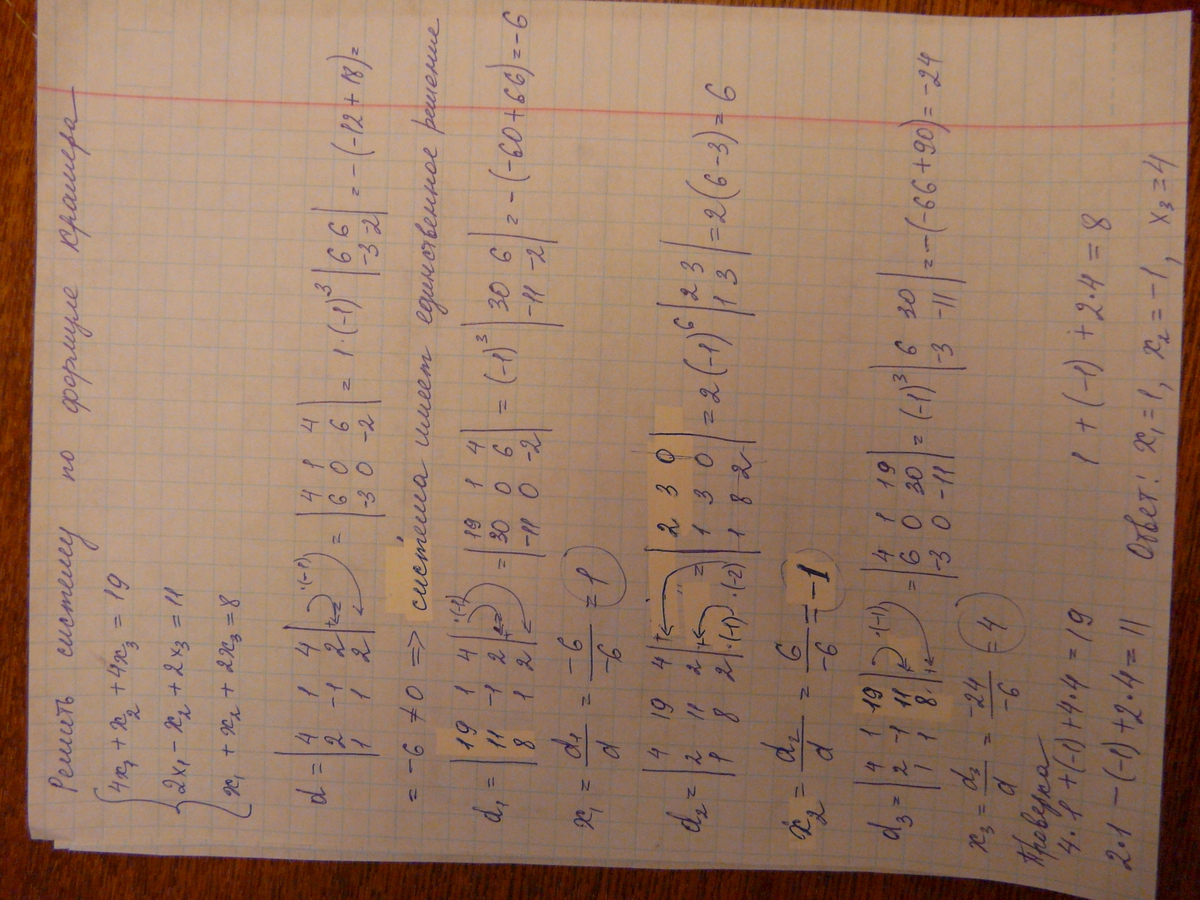 Решить систему по формуле Крамера
{ 4x₁ + x₂ + 4x₃ = 19
2x₁ - x₂ + 2x₃ = 11
x₁ + x₂ + 2x₃ = 8
d = |4 1 4; 2 -1 2; 1 1 2| + ·(-1) = |4 1 4; 6 0 6; -3 0 -2| = 1·(-1)³ |6 6; -3 -2| = -(-12+18) =
= -6 ≠ 0 => система имеет единственное решение
d₁ = |19 1 4; 11 -1 2; 8 1 2| + ·(-1) = |19 1 4; 30 0 6; -11 0 -2| = (-1)³ |30 6; -11 -2| = -(-60+66) = -6
x₁ = d₁/d = -6/-6 = 1
d₂ = |4 19 4; 2 11 2; 1 8 2| + + ·(-1) ·(-2) = |2 3 0; 1 3 0; 1 8 2| = 2(-1)⁶ |2 3; 1 3| = 2(6-3) = 6
x₂ = d₂/d = 6/-6 = -1
d₃ = |4 1 19; 2 -1 11; 1 1 8| + ·(-1) = |4 1 19; 6 0 30; -3 0 -11| = (-1)³ |6 30; -3 -11| = -(-66+90) = -24
x₃ = d₃/d = -24/-6 = 4
Проверка
4·1 + (-1) + 4·4 = 19
1 + (-1) + 2·4 = 8
2·1 - (-1) + 2·4 = 11
Ответ: x₁ = 1, x₂ = -1, x₃ = 4